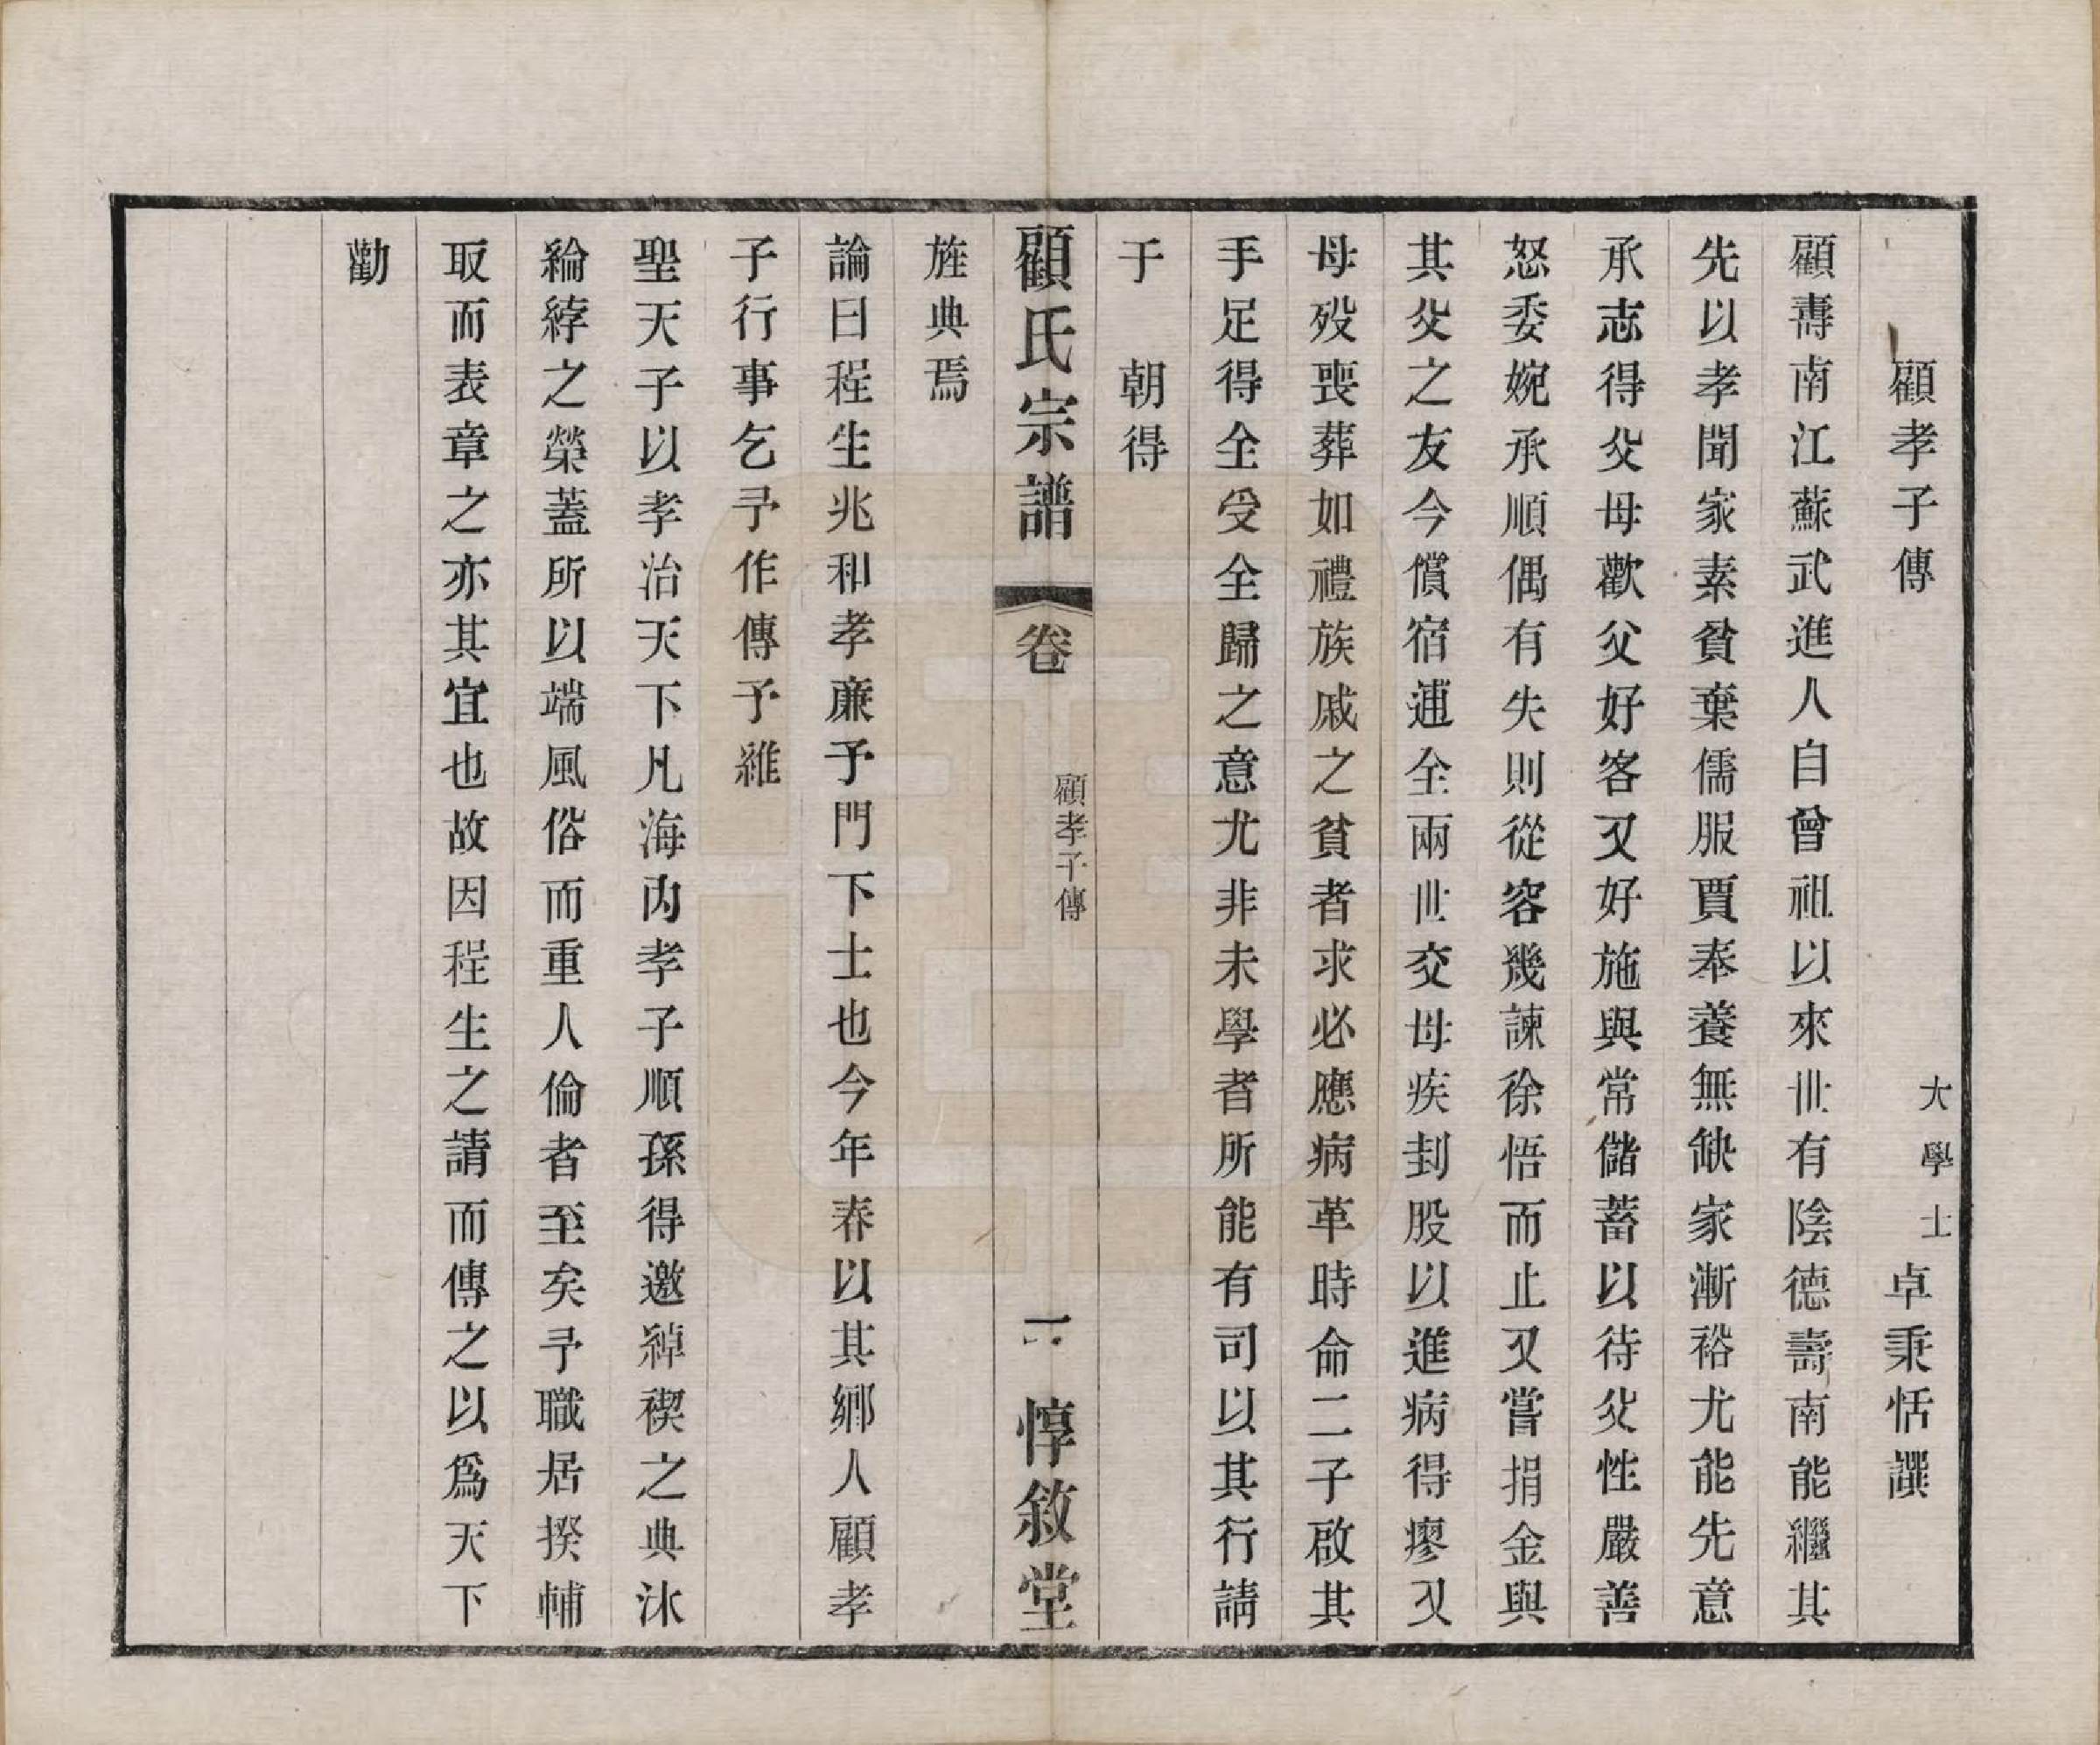 顧孝子傳
大學士卓秉恬譔
顧壽南江蘇武進人自曾祖以來世有陰德壽南能繼其
先以孝聞家素貧棄儒服賈奉養無缺家漸裕尤能先意
承志得父母歡父好客又好施與常儲蓄以待父性嚴善
怒委婉承順偶有失則從容幾諫徐悟而止又嘗捐金與
其父之友今償宿逋全兩世交母疾刲股以進病得瘳又
母歿喪葬如禮族戚之貧者求必應病革時命二子啟其
手足得全受全歸之意尤非未學者所能有司以其行請
于　朝得
顧氏宗譜　卷　顧孝子傳　一　惇敘堂
旌典焉
論曰程生兆和孝廉予門下士也今年春以其鄉人顧孝
子行事乞予作傳予維
聖天子以孝治天下凡海內孝子順孫得邀綽禊之典沐
綸綍之榮蓋所以端風俗而重人倫者至矣予職居揆輔
取而表章之亦其宜也故因程生之請而傳之以爲天下
勸